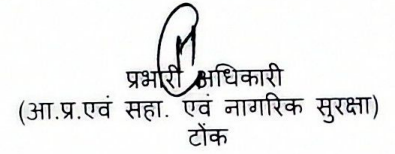 प्रभारी अधिकारी
(आ.प्र.एवं सहा. एवं नागरिक सुरक्षा)
टोंक